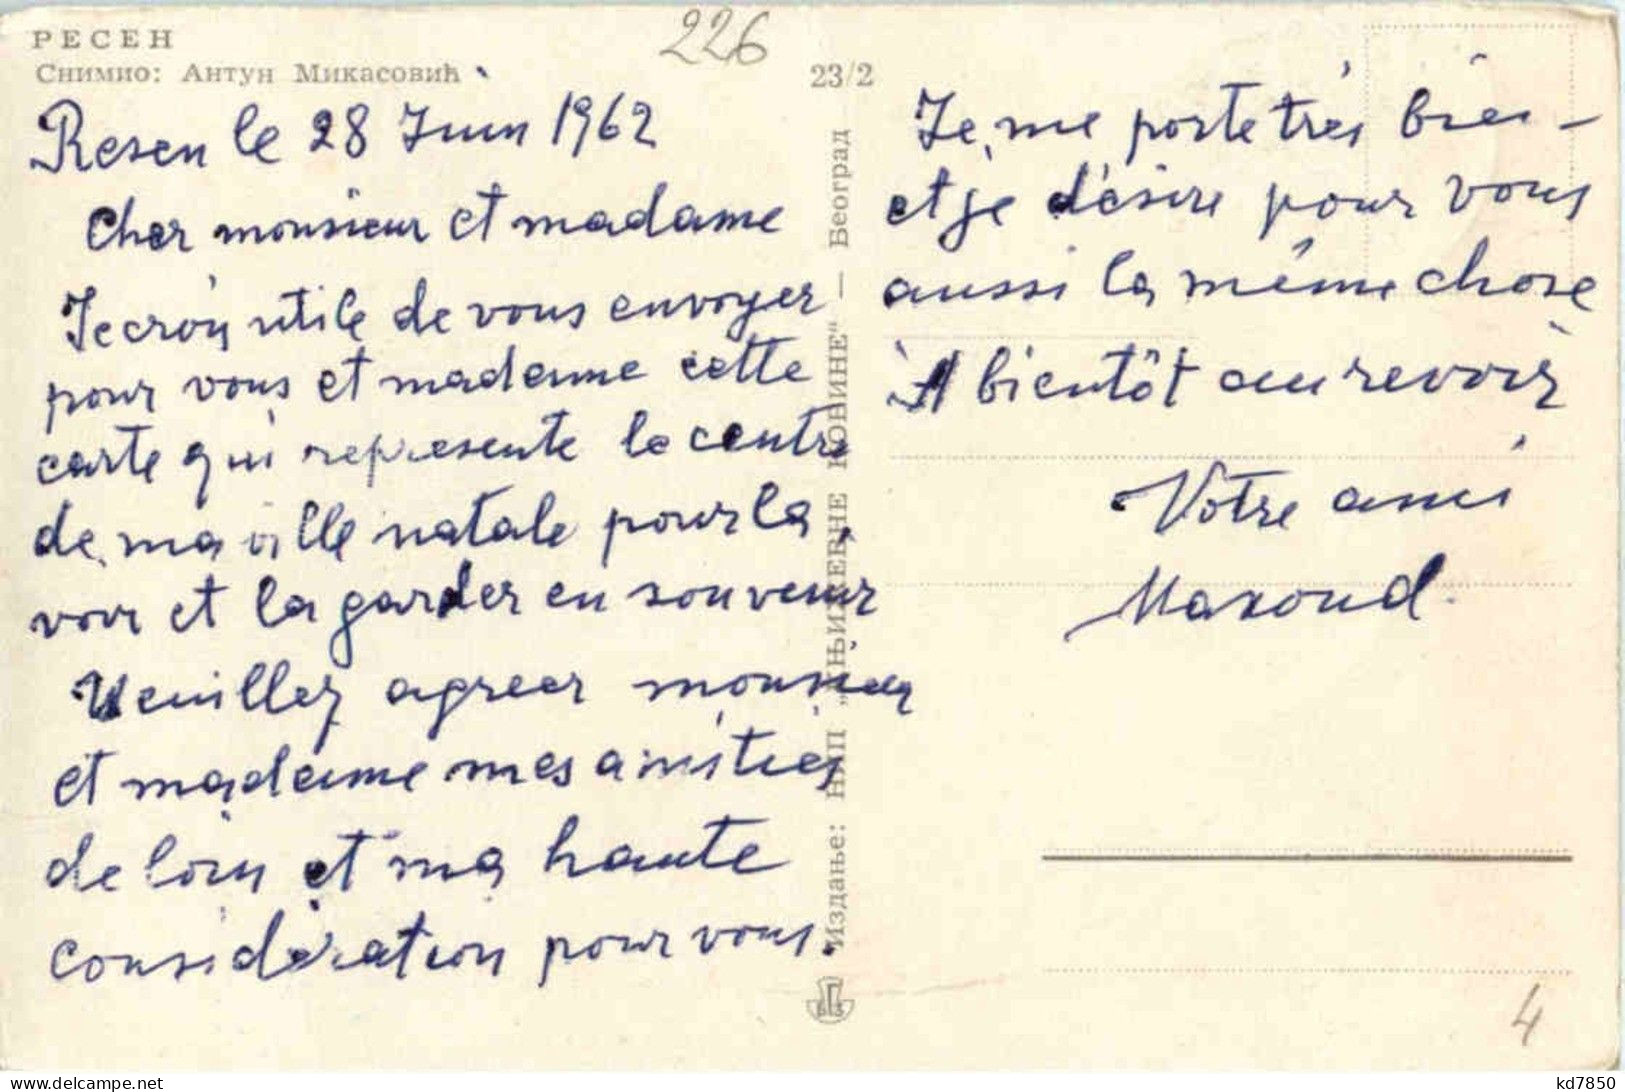 РЕСЕН
Снимио: Антун Микасовић
226
23/2
Resen le 28 Juin 1962
Cher monsieur et madame
Je crois utile de vous envoyer
pour vous et madame cette
carte qui represente le centre
de ma ville natale pour la
voir et la garder en souvenir
Veuillez agreer monsieur
et madame mes amities
de loin et ma haute
considération pour vous.
Je me porte très bien
et je désire pour vous
aussi la même chose
À bientôt au revoir
Votre ami
Издање: НИП „КЊИЖЕВНЕ НОВИНЕ“ — Београд
4
kd7850